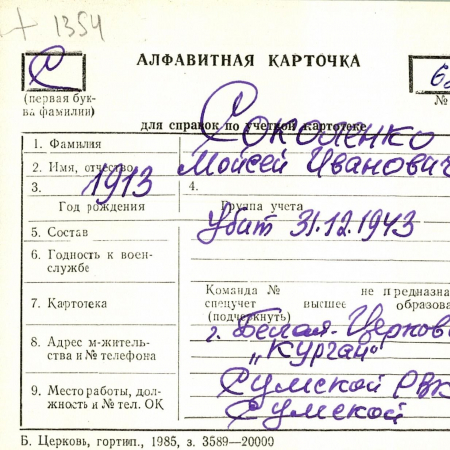 + 1354
АЛФАВИТНАЯ КАРТОЧКА
С
(первая бук-
ва фамилии)
№
для справок по учетной картотеке
1. Фамилия Соколенко
2. Имя, отчество Мойсей Иванович
3. 1913 4.
Год рождения Группа учета
5. Состав Убит 31.12.1943
6. Годность к воен-
службе
Команда № не предназна
7. Картотека спецучет высшее образова
(подчеркнуть)
8. Адрес м-житель- г. Белая-Церковь
ства и № телефона „Курган"
9. Место работы, дол- Сумской РВК
жность и № тел. ОК Сумской
Б. Церковь, гортип., 1985, з. 3589—20000